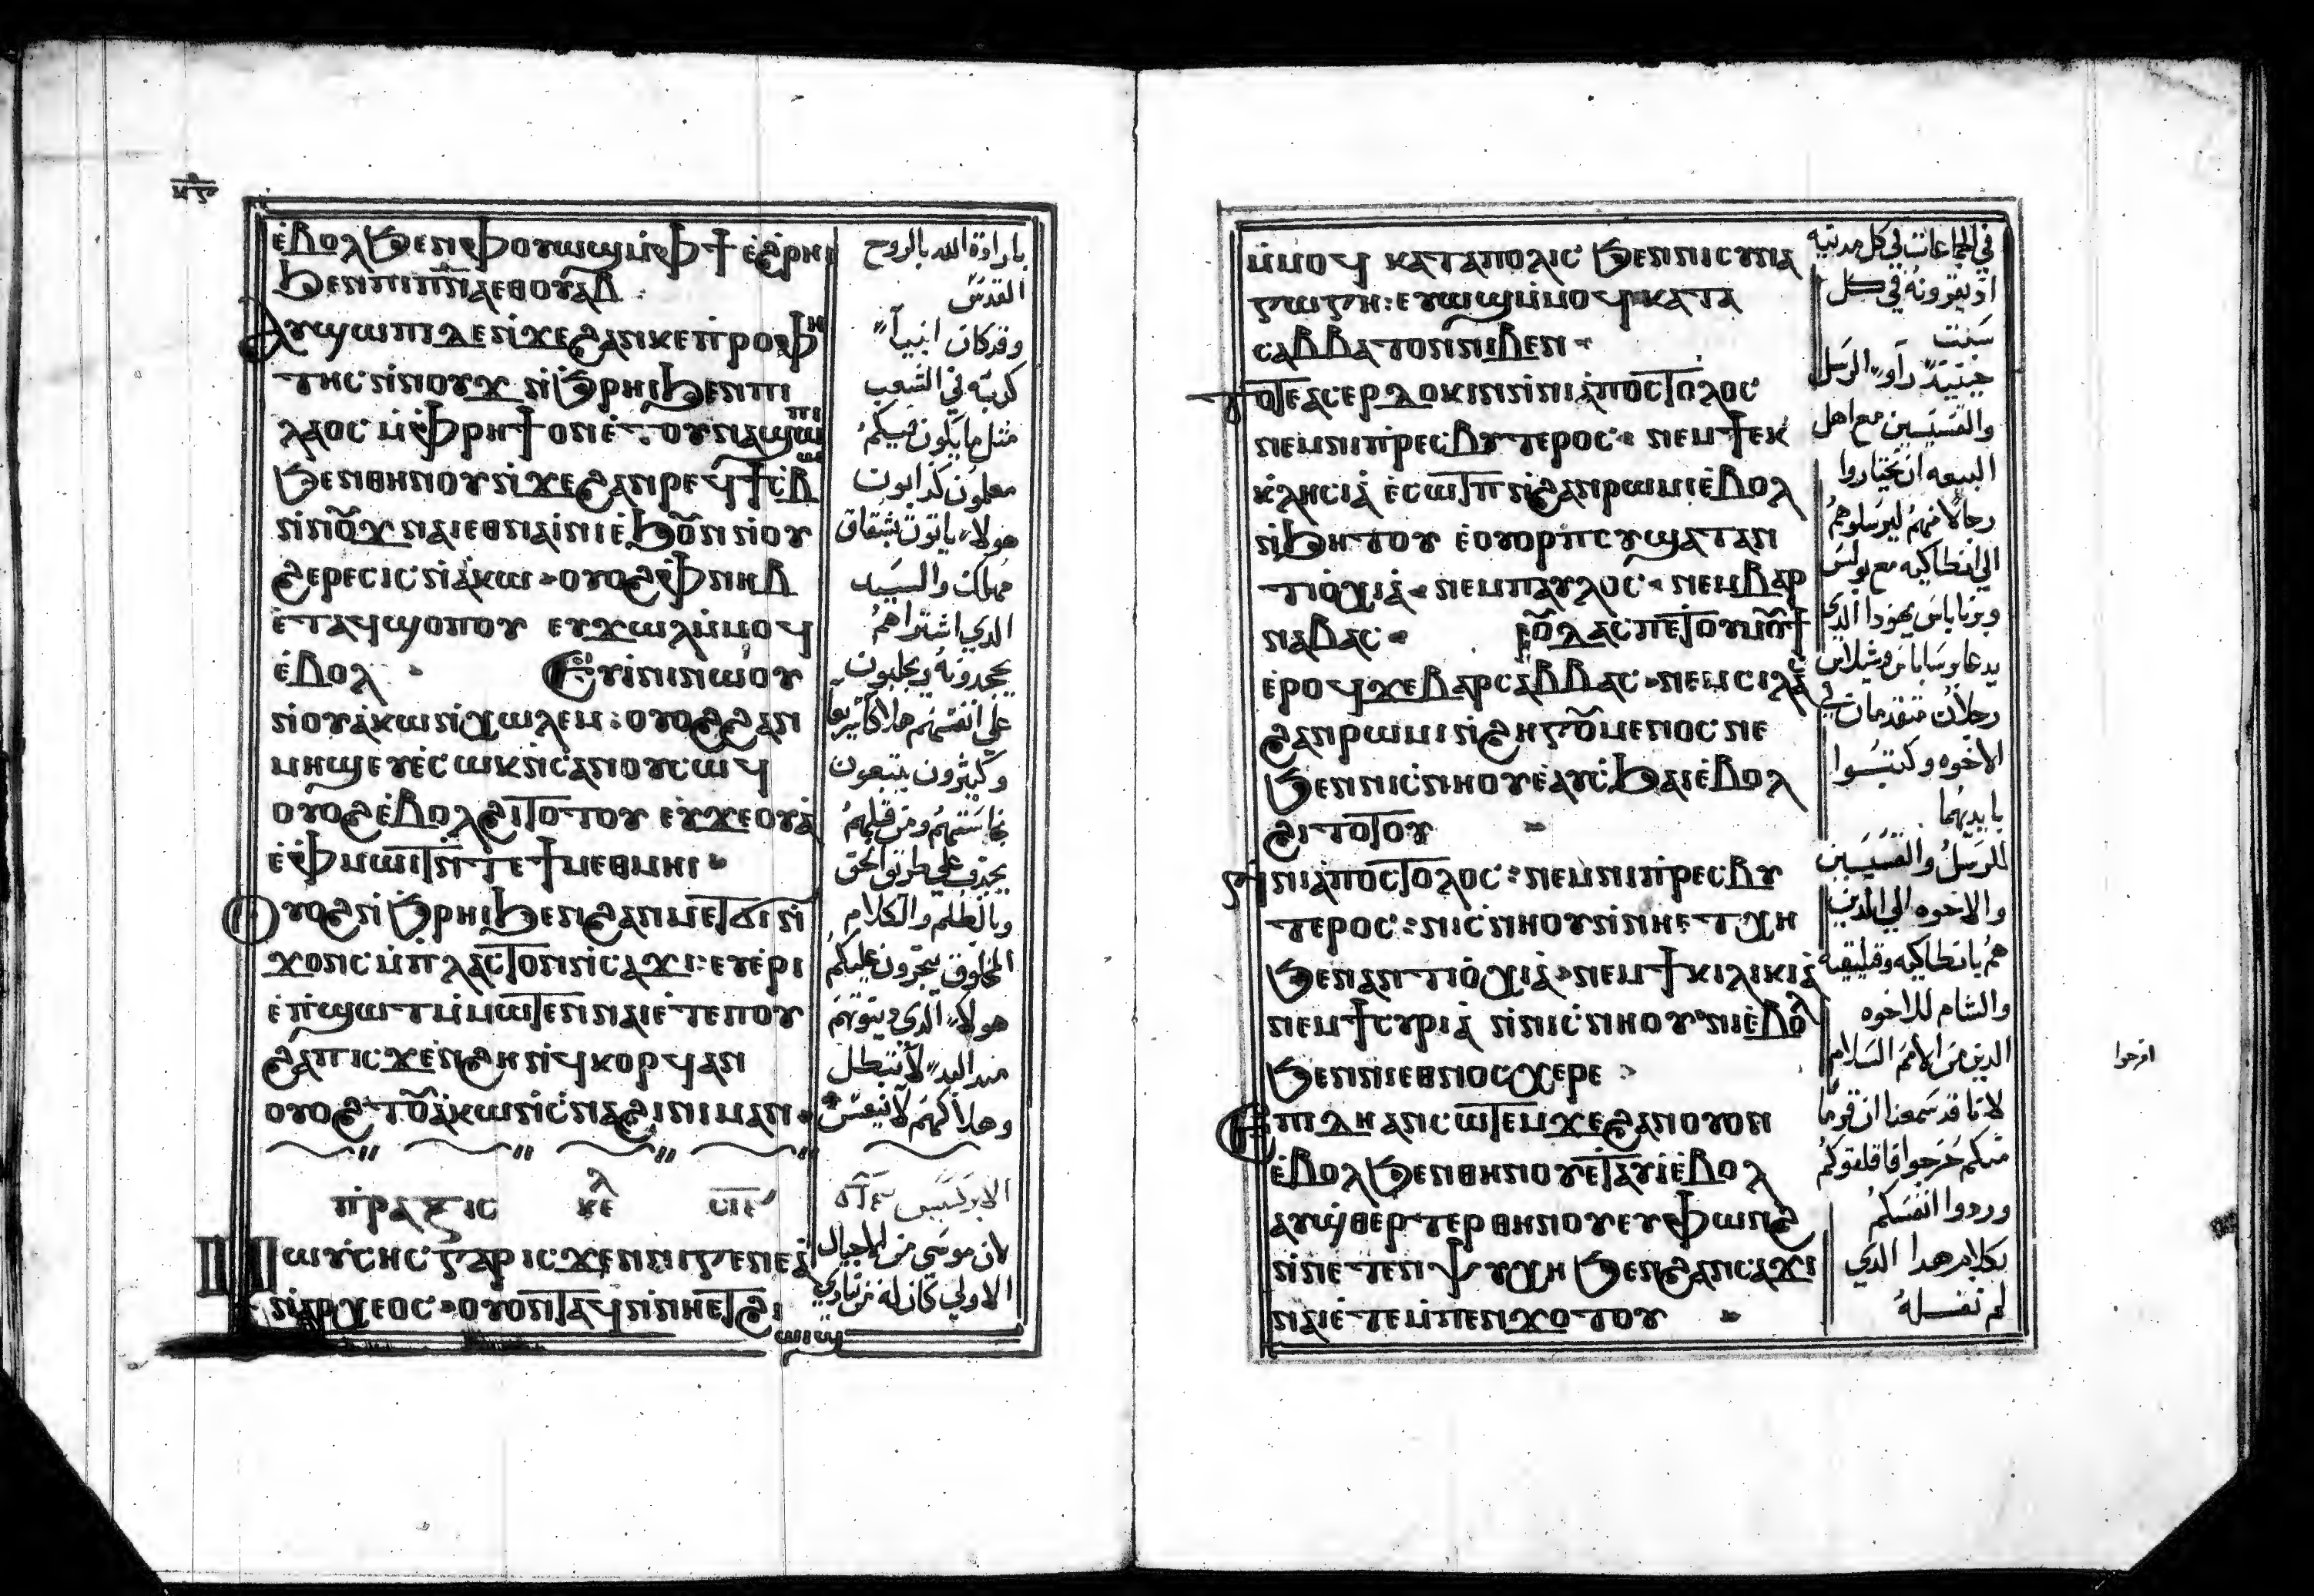 ⲉ̀ⲃⲟⲗϧⲉⲛⲫⲟⲩⲱϣⲙ̀ⲫϯ ⲉ̀ϩⲣⲏⲓ
ϧⲉⲛⲡⲓⲡ̅ⲛ̅ⲁⲉⲑⲟⲩⲁⲃ :
ⲁⲩϣⲱⲡⲓⲇⲉⲛ̀ϫⲉϩⲁⲛⲕⲉⲡ̀ⲣⲟⲫⲏ
ⲧⲏⲥⲛ̀ⲛⲟⲩϫ ⲛ̀ϧⲣⲏⲓϧⲉⲛⲡⲓ
ⲗⲁⲟⲥ ⲙ̀ⲫⲣⲏϯ ⲟⲛⲉ̀ⲧⲟⲩⲛⲁϣⲱⲡⲓ
ϧⲉⲛⲑⲏⲛⲟⲩⲛ̀ϫⲉϩⲁⲛⲣⲉϥϯⲥ̀ⲃⲱ
ⲛ̀ⲛⲟⲩϫ ⲛⲁⲓⲉⲑⲛⲁⲓ̀ⲛⲓⲉ̀ϧⲟⲩⲛ ⲛ̀ⲟⲩ
ϩⲉⲣⲉⲥⲓⲥ ⲛ̀ⲁ̀ⲕⲱ · ⲟⲩⲟϩⲫⲛⲏⲃ
ⲉ̀ⲧⲁϥϣⲟⲡⲟⲩ ⲉⲩϫⲱⲗⲙ̀ⲙⲟϥ
ⲉ̀ⲃⲟⲗ · ⲉⲩⲓ̀ⲛⲓⲛⲱⲟⲩ
ⲛ̀ⲟⲩⲁ̀ⲕⲱⲛ̀ⲭⲱⲗⲉⲙ : ⲟⲩⲟϩϩⲁⲛ
ⲙⲏϣⲉⲩⲉ̀ⲥⲱⲕⲛ̀ⲥⲁⲛⲟⲩⲥⲱϥ
ⲟⲩⲟϩⲉ̀ⲃⲟⲗϩⲓⲧⲟⲧⲟⲩ ⲉⲩϫⲉⲟⲩⲁ̀
ⲉ̀ⲫⲙⲱⲓⲧⲛ̀ⲧⲉϯⲙⲉⲑⲙⲏⲓ ·
ⲟⲩⲟϩⲛ̀ϧⲣⲏⲓϧⲉⲛϩⲁⲛⲙⲉⲧϭⲓⲛ̀
ϫⲟⲛⲥ ⲙ̀ⲡ̀ⲗⲁⲥⲧⲟⲛⲛ̀ⲥⲁϫⲓ : ⲉⲩⲉ̀ⲣⲓ
ⲉ̀ⲡ̀ϣⲱⲧⲙ̀ⲙⲱⲧⲉⲛ ⲛⲁⲓⲉ̀ⲧⲉⲡⲟⲩ
ϩⲁⲡ ⲓⲥϫⲉⲛϩⲏ ⲛ̀ϥⲕⲟⲣϥⲁⲛ
ⲟⲩⲟϩⲧⲟⲩⲁ̀ⲕⲱⲛ̀ⲥ̀ⲛⲁϩⲓⲛⲓⲙⲁⲛ ·
ⲡ̀ⲣⲁⲝⲓⲥ ⲕⲉⲗ
ⲙⲱⲩ̀ⲥⲏⲥ ⲅⲁⲣ ⲓⲥϫⲉⲛⲛⲓⲅⲉⲛⲉⲁ̀
ⲛ̀ⲁⲣⲭⲉⲟⲥ · ⲟⲩⲟⲛⲧⲁϥⲛ̀ⲛⲏⲉⲧϩⲓ
ⲱⲓϣ
باراده الله بالروح
القدس
وقد كان انبياء
كدبه في الشعب
مثل ما يكون فيكم
معلمون كدابون
هولاء ياتون بشقاق
مهلك والسيد
الدي اشتراهم
يجحدونه ويجلبون
على انفسهم هلاكا سريعا
وكثيرون يتبعون
نجاستهم ومن قبلهم
يجدف على طريق الحق
وبالظلم والكلام
المخلوق يتجرون عليكم
هولاء الدي دينونتهم
مند البدء لا تبطل
وهلاكهم لا ينعس
الابركسيس
لان موسى من الاجيال
الاولى كان له من ينادي
ⲙ̀ⲙⲟϥ ⲕⲁⲧⲁⲡⲟⲗⲓⲥ ϧⲉⲛⲛⲓⲥⲩⲛⲁ
ⲅⲱⲅⲏ : ⲉⲩⲱϣⲙ̀ⲙⲟϥⲕⲁⲧⲁ
ⲥⲁⲃⲃⲁⲧⲟⲛⲛⲓⲃⲉⲛ ·
ⲧⲟⲧⲉⲁⲥⲉⲣⲇⲟⲕⲓⲛⲛ̀ⲛⲓⲁ̀ⲡⲟⲥⲧⲟⲗⲟⲥ
ⲛⲉⲙⲛⲓⲡ̀ⲣⲉⲥⲃⲩⲧⲉⲣⲟⲥ · ⲛⲉⲙϯⲉⲕ
ⲕ̀ⲗⲏⲥⲓⲁ̀ ⲉ̀ⲥⲱⲧⲡ ⲛ̀ϩⲁⲛⲣⲱⲙⲓⲉ̀ⲃⲟⲗ
ⲛ̀ϧⲏⲧⲟⲩ ⲉ̀ⲟⲩⲟⲣⲡⲥⲩϣⲁⲧⲁⲛ
ⲧⲓⲟ̀ⲭⲓⲁ̀ · ⲛⲉⲙⲡⲁⲩⲗⲟⲥ · ⲛⲉⲙⲃⲁⲣ
ⲛⲁⲃⲁⲥ · ⲓⲟⲩⲇⲁⲥⲡⲉⲧⲟⲩⲙⲟⲩϯ
ⲉ̀ⲣⲟϥϫⲉⲃⲁⲣⲥⲁⲃⲃⲁⲥ · ⲛⲉⲙⲥⲓⲗⲁ
ϩⲁⲛⲣⲱⲙⲓ ⲛ̀ϩⲏⲅⲟⲩⲙⲉⲛⲟⲥ ⲛⲉ
ϧⲉⲛⲛⲓⲥ̀ⲛⲏⲟⲩⲉ̀ⲁⲩⲥ̀ϧⲁⲓⲉ̀ⲃⲟⲗ
ϩⲓⲧⲟⲧⲟⲩ
ⲛⲓⲁ̀ⲡⲟⲥⲧⲟⲗⲟⲥ : ⲛⲉⲙⲛⲓⲡ̀ⲣⲉⲥⲃⲩ
ⲧⲉⲣⲟⲥ : ⲛⲓⲥ̀ⲛⲏⲟⲩⲛ̀ⲛⲏⲉⲧⲭⲏ
ϧⲉⲛⲁⲛⲧⲓⲟ̀ⲭⲓⲁ̀ · ⲛⲉⲙϯⲕⲓⲗⲓⲕⲓⲁ̀
ⲛⲉⲙϯⲥⲩⲣⲓⲁ̀ ⲛ̀ⲛⲓⲥ̀ⲛⲏⲟⲩ · ⲛⲓⲉ̀ⲃⲟⲗ
ϧⲉⲛⲛⲓⲉⲑⲛⲟⲥⲭⲉⲣⲉ ·
ⲉⲡⲓⲇⲏ ⲁⲛⲥⲱⲧⲉⲙϫⲉϩⲁⲛⲟⲩⲟⲛ
ⲉ̀ⲃⲟⲗϧⲉⲛⲑⲏⲛⲟⲩⲉⲧⲁⲩⲓ̀ⲉ̀ⲃⲟⲗ
ⲁⲩϣ̀ⲑⲉⲣⲧⲉⲣ ⲑⲏⲛⲟⲩⲉⲩⲫⲱⲛϩ
ⲛ̀ⲛⲉⲧⲉⲛⲯⲩⲭⲏ ϧⲉⲛϩⲁⲛⲥⲁϫⲓ
ⲛⲁⲓⲉ̀ⲧⲉⲙ̀ⲡⲉⲛϫⲟⲧⲟⲩ
في الجماعات في كل مدينه
اد يقرونه في كل
سبت
حينيد راو الرسل
والقسيسين مع اهل
البيعه ان يختاروا
رجالا منهم ليرسلوهم
الى انطاكيه مع بولس
وبرناباس يهودا الدي
يدعا برسابا وشيلا
رجلان متقدمان في
الاخوه وكتبوا
بايديهما
الرسل والقسيسين
والاخوه الى الدين
هم بانطاكيه وقليقيه
والشام للاخوه
الدين من الامم السلام
لاننا قد سمعنا ان قوما
منكم خرجوا فاقلقوكم
ورددوا انفسكم
بكلام هدا الدي
لم نقله
افرحوا